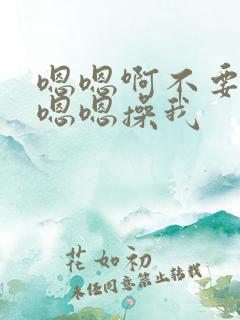 嗯嗯啊不要
嗯嗯操我
花如初
未经同意禁止转载